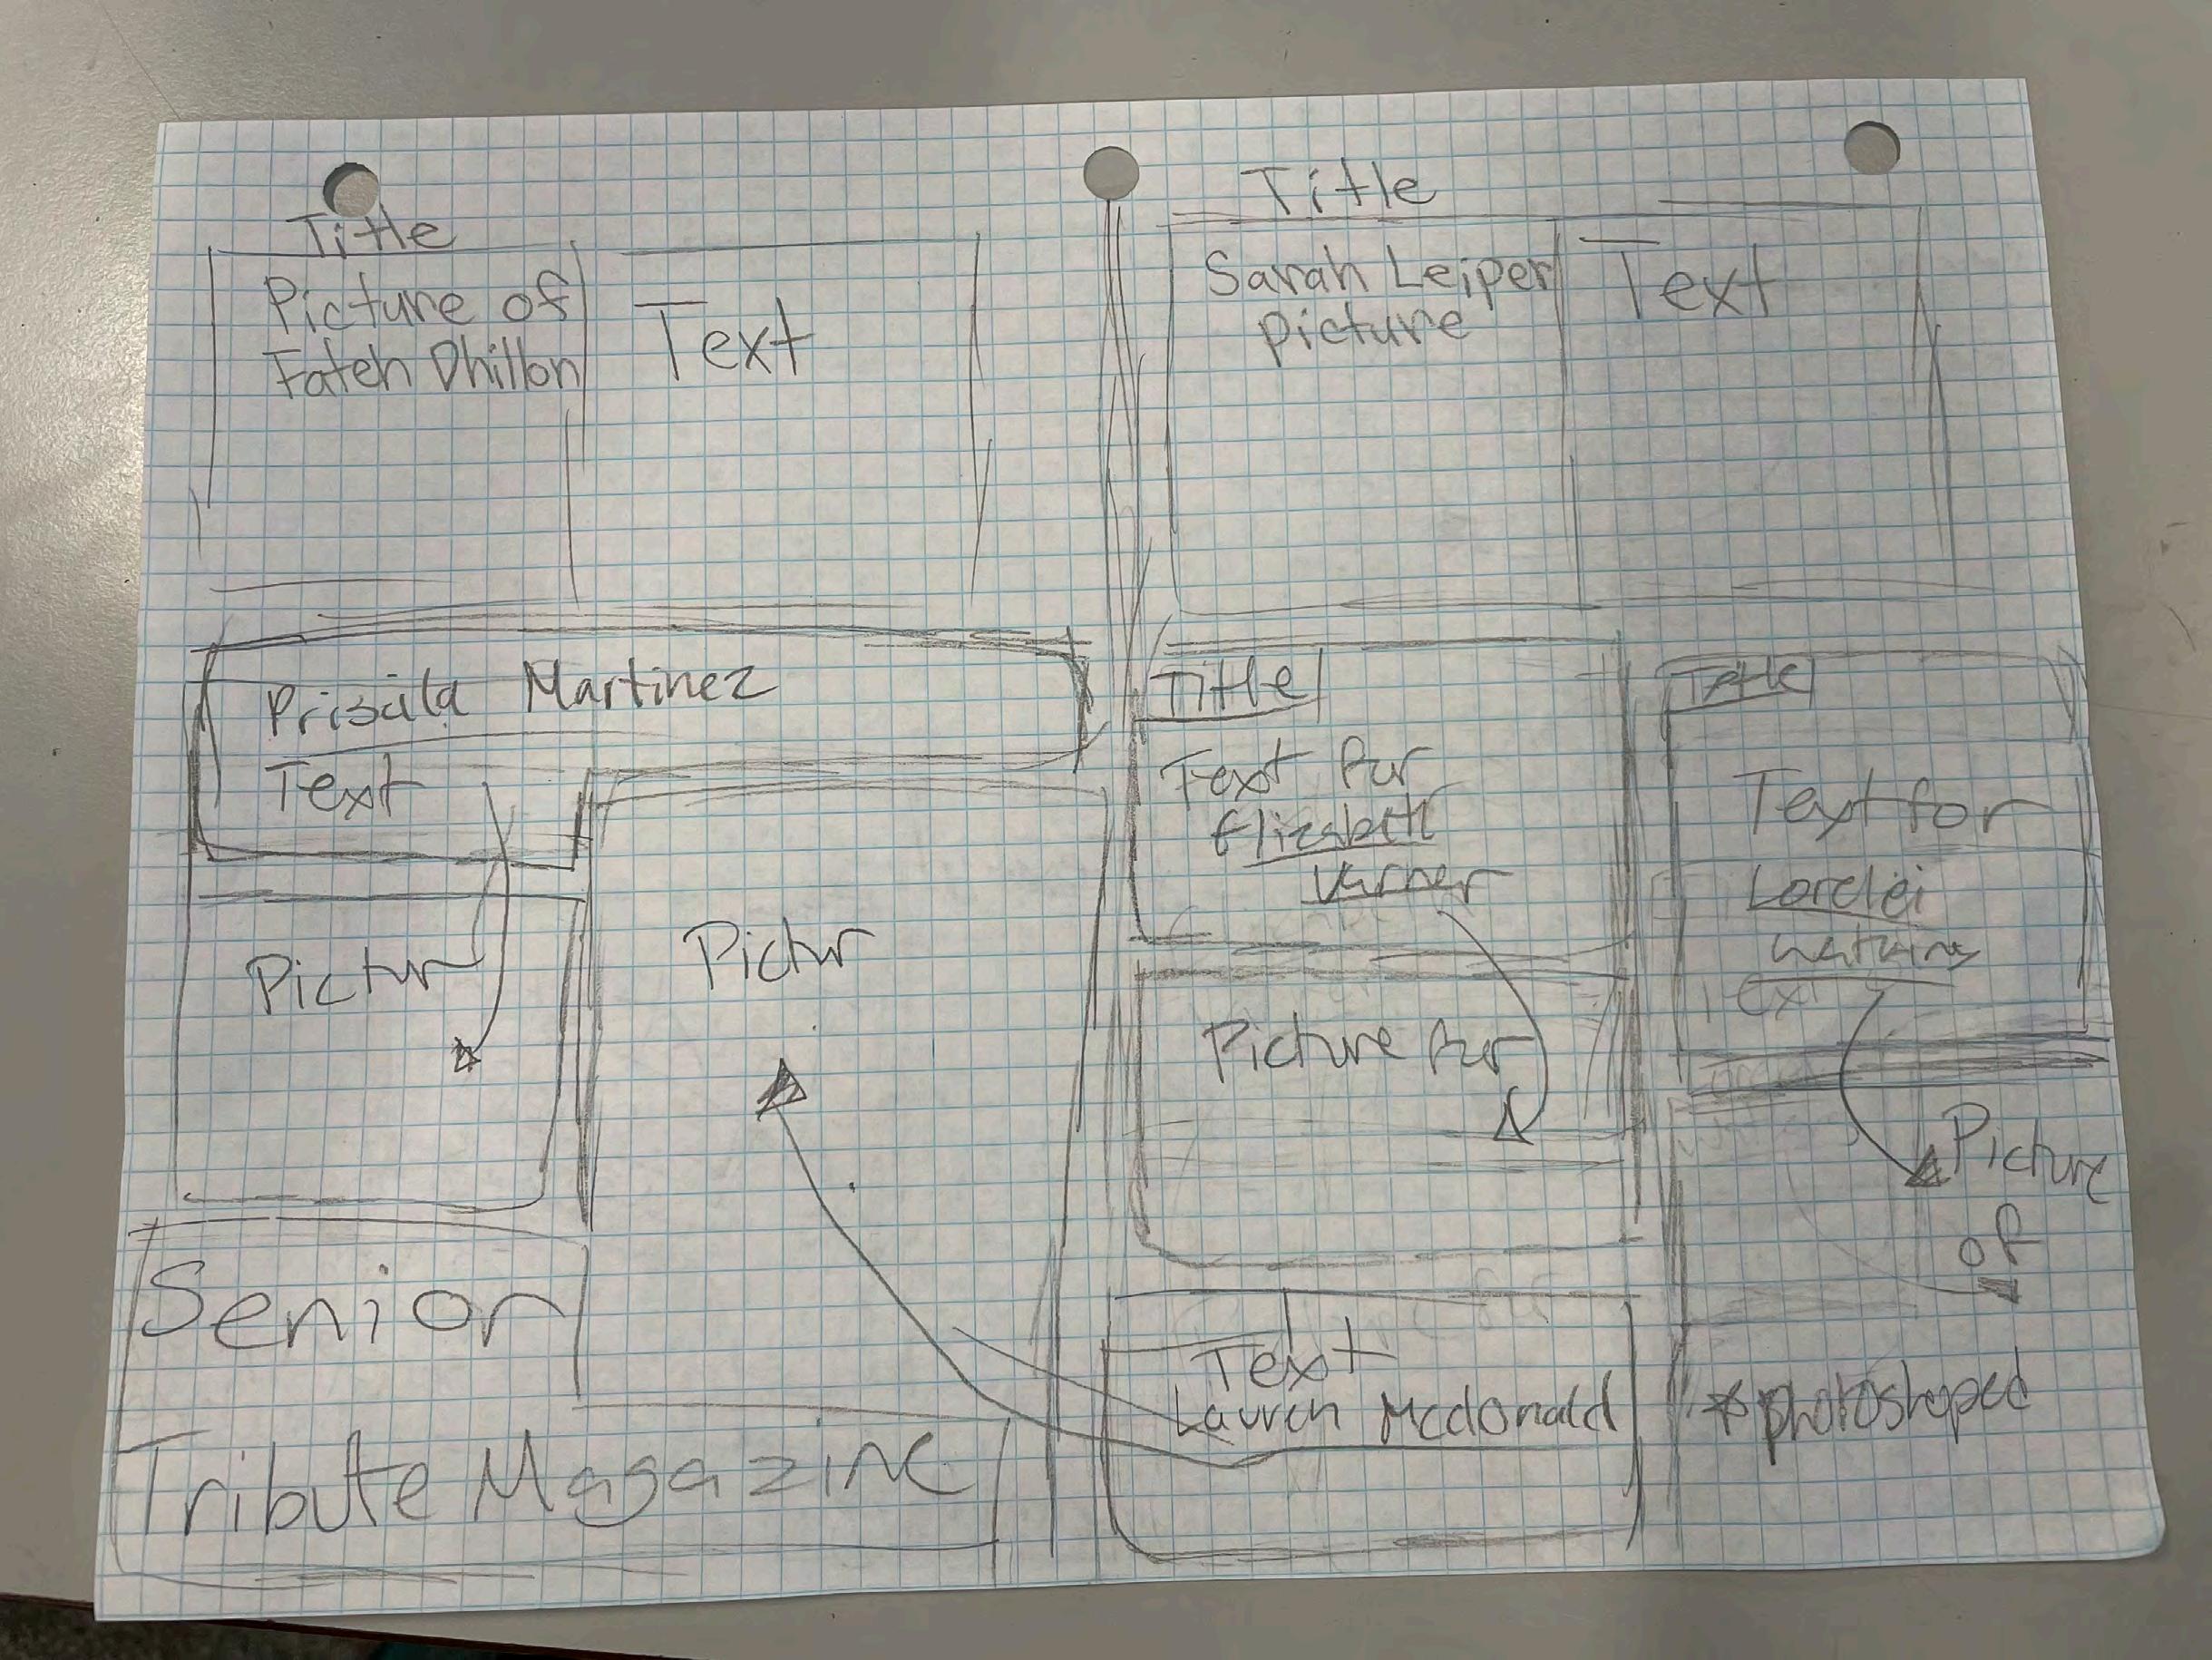 Title
Picture of
Fateh Dhillon
Text
Title
Sarah Leiper
Picture
Text
Priscila Martinez
Text
Pictur
Pictur
Senior
Tribute Magazine
Title
Text for
Elizabeth
Varner
Picture for
Text
Lauren Mcdonald
Title
Text for
Lorelei
watkins
Text
Picture
of
*photoshoped